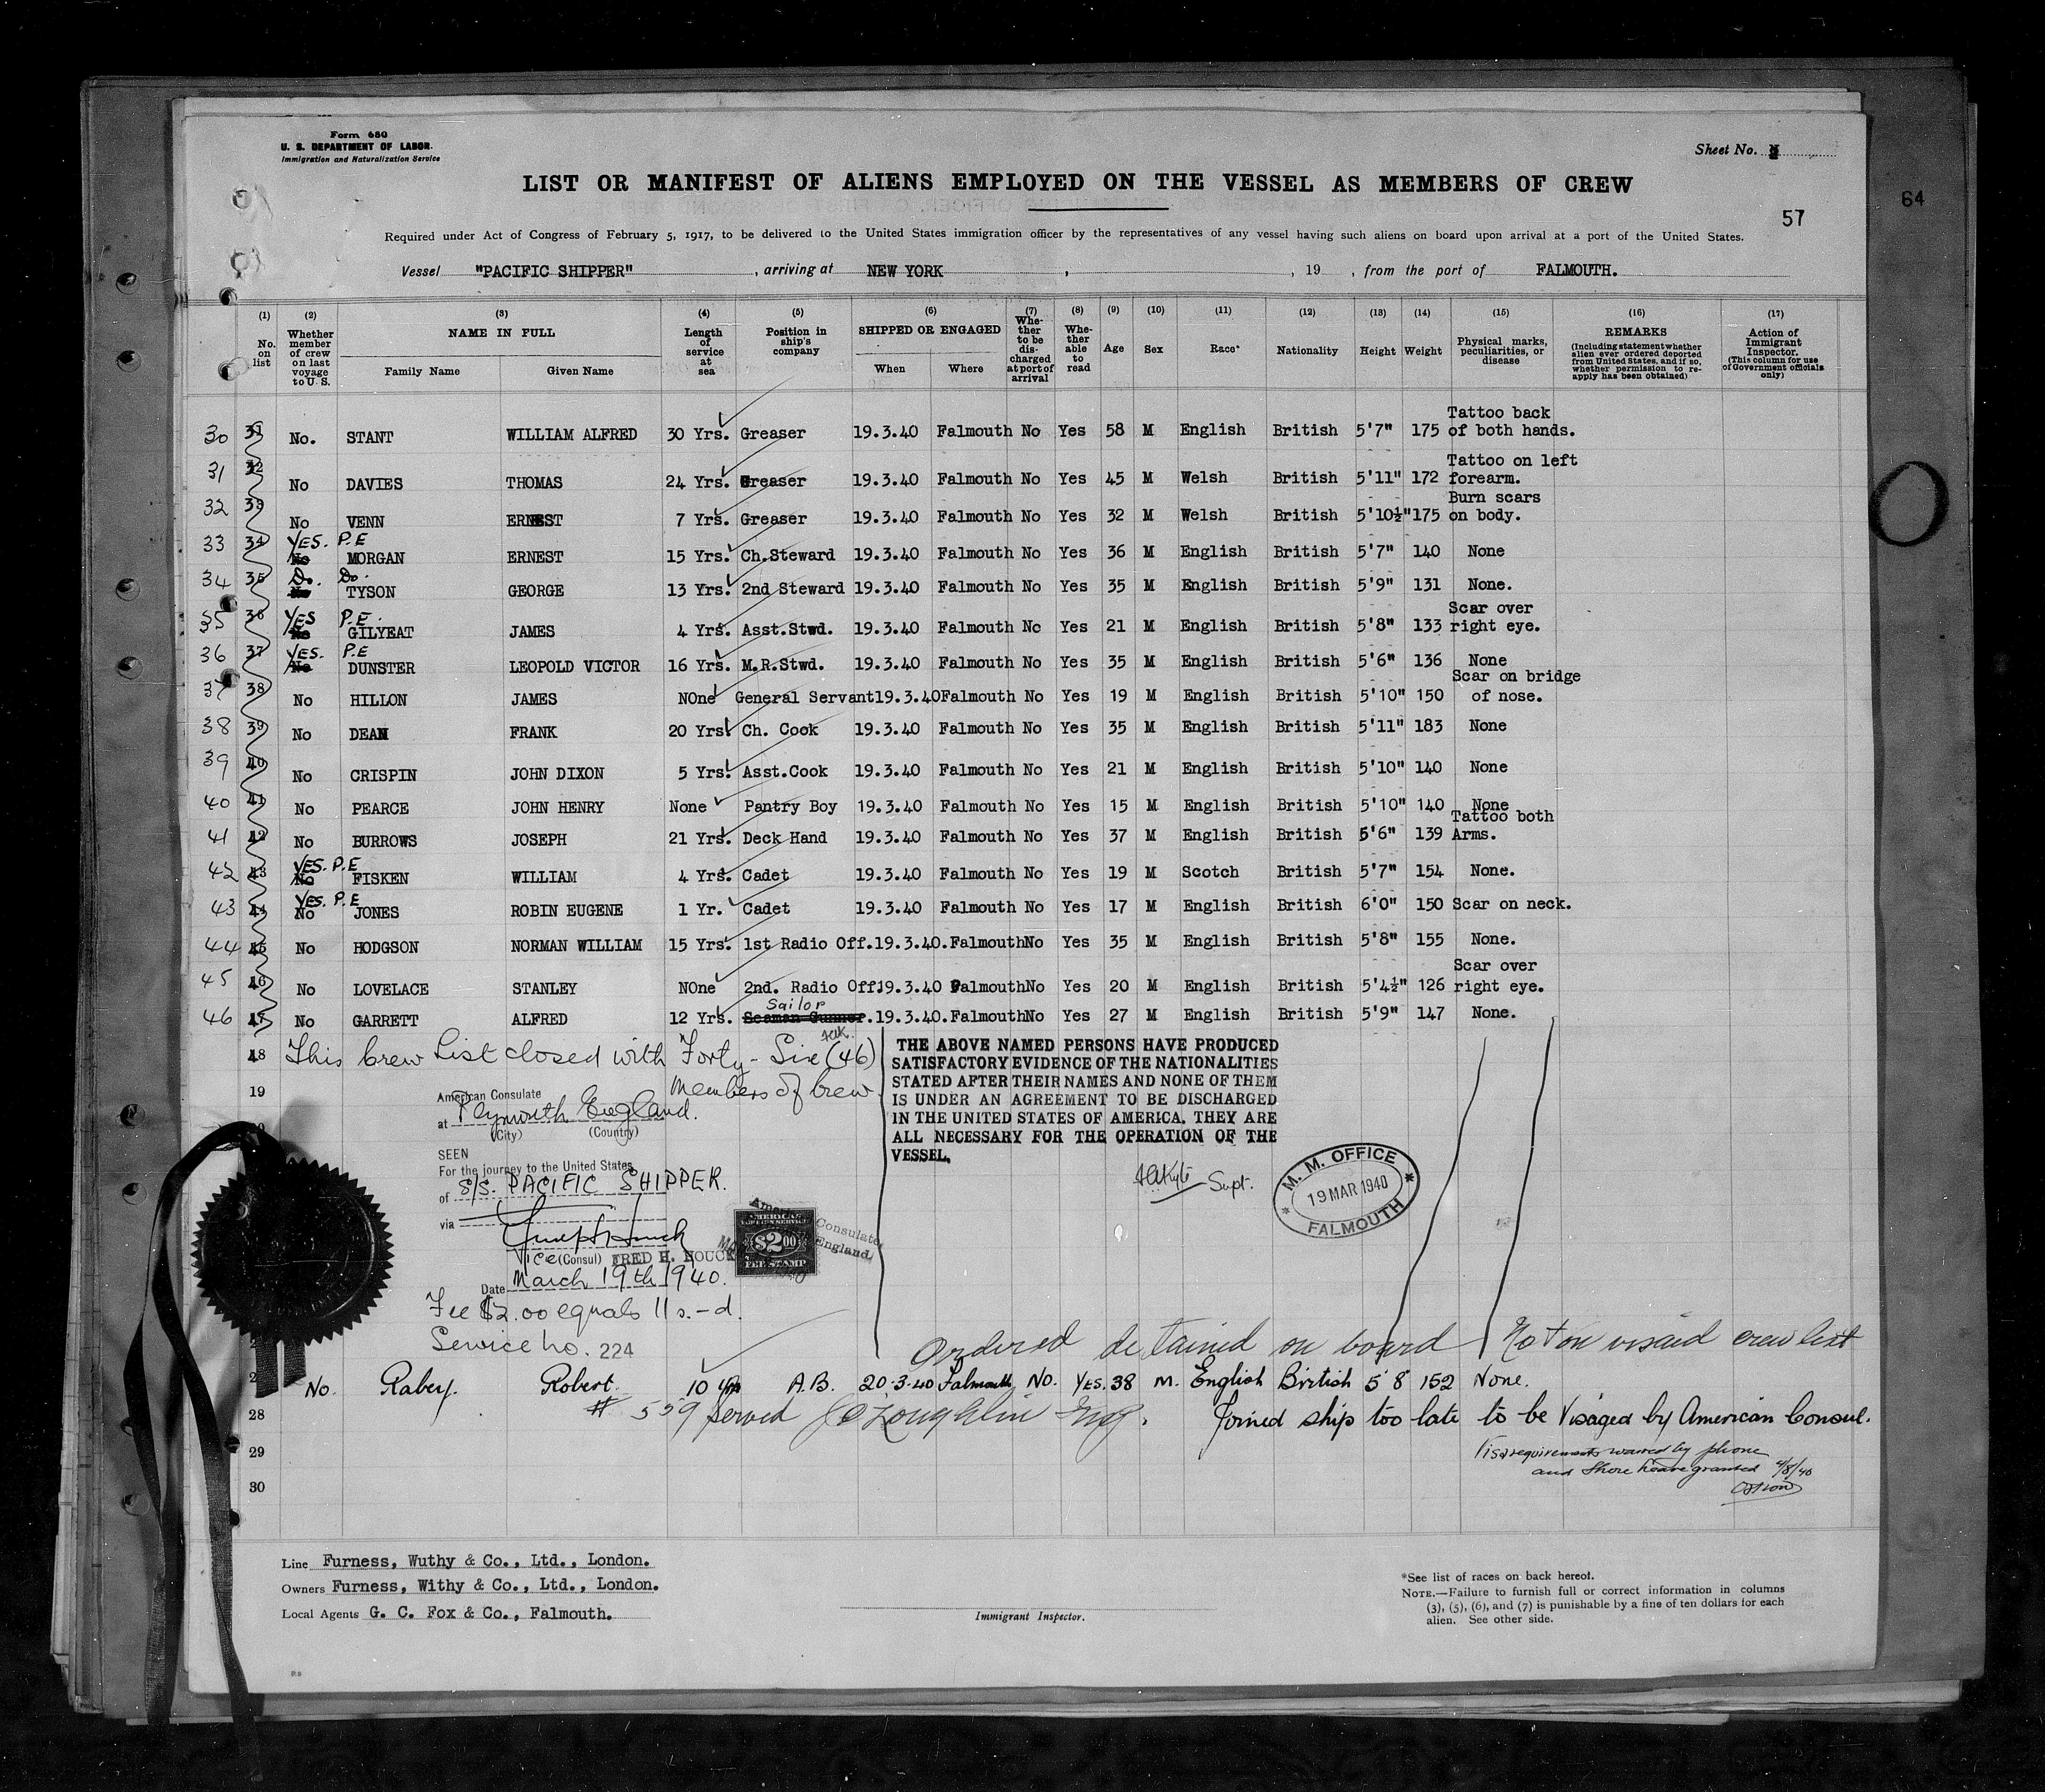 Form 680
U. S. DEPARTMENT OF LABOR.
Immigration and Naturalization Service
Sheet No.
LIST OR MANIFEST OF ALIENS EMPLOYED ON THE VESSEL AS MEMBERS OF CREW
64
57
Required under Act of Congress of February 5, 1917, to be delivered to the United States immigration officer by the representatives of any vessel having such aliens on board upon arrival at a port of the United States.
Vessel "PACIFIC SHIPPER", arriving at NEW YORK, , 19 , from the port of FALMOUTH.
(1) (2) (3) (4) (5) (6) (7) (8) (9) (10) (11) (12) (13) (14) (15) (16) (17)
No. on list
Whether member of crew on last voyage to U. S.
NAME IN FULL
Family Name
Given Name
Length of service at sea
Position in ship's company
SHIPPED OR ENGAGED
When
Where
Whether to be discharged at port of arrival
Whether able to read
Age
Sex
Race*
Nationality
Height
Weight
Physical marks, peculiarities, or disease
REMARKS
(Including statement whether alien ever ordered deported from United States, and if so, whether permission to re-apply has been obtained)
Action of Immigrant Inspector.
(This column for use of Government officials only)
30 31 No. STANT WILLIAM ALFRED 30 Yrs. Greaser 19.3.40 Falmouth No Yes 58 M English British 5'7" 175 Tattoo back of both hands.
31 32 No DAVIES THOMAS 24 Yrs. Greaser 19.3.40 Falmouth No Yes 45 M Welsh British 5'11" 172 Tattoo on left forearm.
32 33 No VENN ERNEST 7 Yrs. Greaser 19.3.40 Falmouth No Yes 32 M Welsh British 5'10½" 175 Burn scars on body.
33 34 YES. P.E No MORGAN ERNEST 15 Yrs. Ch.Steward 19.3.40 Falmouth No Yes 36 M English British 5'7" 140 None
34 35 Do. Do. No TYSON GEORGE 13 Yrs. 2nd Steward 19.3.40 Falmouth No Yes 35 M English British 5'9" 131 None.
35 36 YES P.E. No GILYEAT JAMES 4 Yrs. Asst.Stwd. 19.3.40 Falmouth No Yes 21 M English British 5'8" 133 Scar over right eye.
36 37 YES. P.E No DUNSTER LEOPOLD VICTOR 16 Yrs. M.R.Stwd. 19.3.40 Falmouth No Yes 35 M English British 5'6" 136 None
37 38 No HILLON JAMES NOne General Servant 19.3.40 Falmouth No Yes 19 M English British 5'10" 150 Scar on bridge of nose.
38 39 No DEAN FRANK 20 Yrs. Ch. Cook 19.3.40 Falmouth No Yes 35 M English British 5'11" 183 None
39 40 No CRISPIN JOHN DIXON 5 Yrs. Asst.Cook 19.3.40 Falmouth No Yes 21 M English British 5'10" 140 None
40 41 No PEARCE JOHN HENRY None Pantry Boy 19.3.40 Falmouth No Yes 15 M English British 5'10" 140 None
41 42 No BURROWS JOSEPH 21 Yrs. Deck Hand 19.3.40 Falmouth No Yes 37 M English British 5'6" 139 Tattoo both Arms.
42 43 YES. P.E No FISKEN WILLIAM 4 Yrs. Cadet 19.3.40 Falmouth No Yes 19 M Scotch British 5'7" 154 None.
43 44 YES. P.E No JONES ROBIN EUGENE 1 Yr. Cadet 19.3.40 Falmouth No Yes 17 M English British 6'0" 150 Scar on neck.
44 45 No HODGSON NORMAN WILLIAM 15 Yrs. 1st Radio Off. 19.3.40. Falmouth No Yes 35 M English British 5'8" 155 None.
45 46 No LOVELACE STANLEY NOne 2nd. Radio Off. 19.3.40 Falmouth No Yes 20 M English British 5'4½" 126 Scar over right eye.
46 47 No GARRETT ALFRED 12 Yrs. Sailor Seaman Gunner. 19.3.40. Falmouth No Yes 27 M English British 5'9" 147 None.
18 This Crew List closed with Forty-Six (46)
19 members of Crew.
THE ABOVE NAMED PERSONS HAVE PRODUCED
SATISFACTORY EVIDENCE OF THE NATIONALITIES
STATED AFTER THEIR NAMES AND NONE OF THEM
IS UNDER AN AGREEMENT TO BE DISCHARGED
IN THE UNITED STATES OF AMERICA. THEY ARE
ALL NECESSARY FOR THE OPERATION OF THE
VESSEL.
Supt.
M. M. OFFICE
19 MAR 1940
FALMOUTH
American Consulate
at Plymouth England.
(City) (Country)
SEEN
For the journey to the United States
of S/S. PACIFIC SHIPPER.
via
Vice (Consul) FRED H. HOUCK
Date March 19th 1940.
AMERICAN
FOREIGN SERVICE
$2.00
FEE STAMP
American Consulate
England
Fee $2.00 equals 11 s. - d.
Service No. 224
Ordered detained on board Not on visaed crew list
No. Rabey. Robert. 10 yrs A.B. 20.3.40 Falmouth No. YES. 38 M. English British 5'8 152 None.
28 # 509 served J O'Loughlin Joined ship too late to be Visaged by American Consul.
29 Visa requirements waived by phone
and Shore leave granted 4/8/40
30
Line Furness, Wuthy & Co., Ltd., London.
Owners Furness, Withy & Co., Ltd., London.
Local Agents G. C. Fox & Co., Falmouth.
Immigrant Inspector.
*See list of races on back hereof.
NOTE.—Failure to furnish full or correct information in columns
(3), (5), (6), and (7) is punishable by a fine of ten dollars for each
alien. See other side.